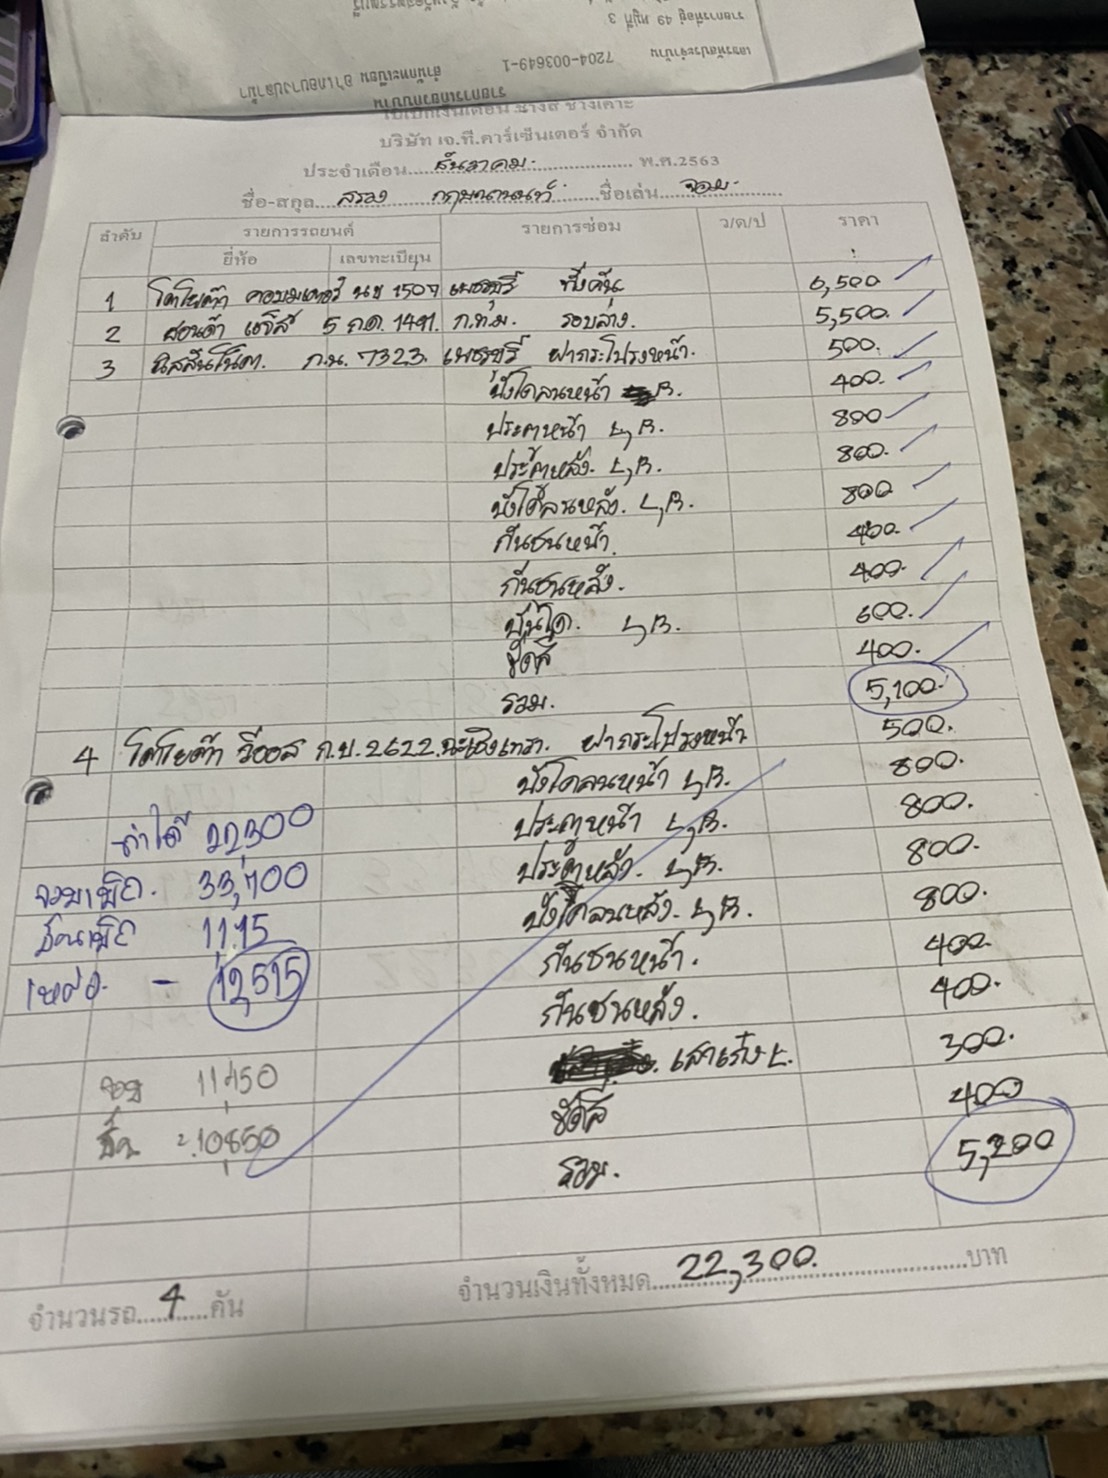 รายการที่อยู่ 49 หมู่ที่ 3
เลขรหัสประจำบ้าน 7204-003649-1 สำนักทะเบียน อำเภอบางปลาม้า
รายการเกี่ยวกับบ้าน
ใบเบิกเงินเดือน ช่างสี ช่างเคาะ
บริษัท เจ.ที.คาร์เซ็นเตอร์ จำกัด
ประจำเดือน ธันวาคม. พ.ศ.2563
ชื่อ-สกุล ชื่อเล่น จอย.
ลำดับ รายการรถยนต์ รายการซ่อม ว/ด/ป ราคา
ยี่ห้อ เลขทะเบียน
1 โตโยต้า คอมมูเตอร์ นข 1507 เพชรบุรี ทั้งคัน 6,500
2 ฮอนด้า แจ๊ส 5 กด. 1491. ก.ท.ม. รอบล่าง. 5,500.
3 นิสสันโน๊ต. ก.น. 7323. เพชรบุรี ฝากระโปรงหน้า. 500.
บังโคลนหน้า R. 400.
ประตูหน้า L,R. 800
ประตูหลัง. L,R. 800.
บังโคลนหลัง. L,R. 800
กันชนหน้า. 400.
กันชนหลัง. 400.
บันได. L,R. 600.
ขัดสี 400.
รวม. 5,100.
4 โตโยต้า วีออส ก.บ. 2622. ฉะเชิงเทรา. ฝากระโปรงหน้า 500.
บังโคลนหน้า L,R. 800.
ประตูหน้า L,R. 800.
ทำได้ 22,300
ประตูหลัง. L,R. 800.
จอยเบิก. 33,700
บังโคลนหลัง. L,R. 800.
11,15
กันชนหน้า. 400.
เหลือ. - 12,515
กันชนหลัง. 400.
เสาเก๋ง L. 300.
จอย 11,450
ขัดสี 400
10,850
รวม. 5,200
จำนวนรถ 4 คัน จำนวนเงินทั้งหมด 22,300. บาท